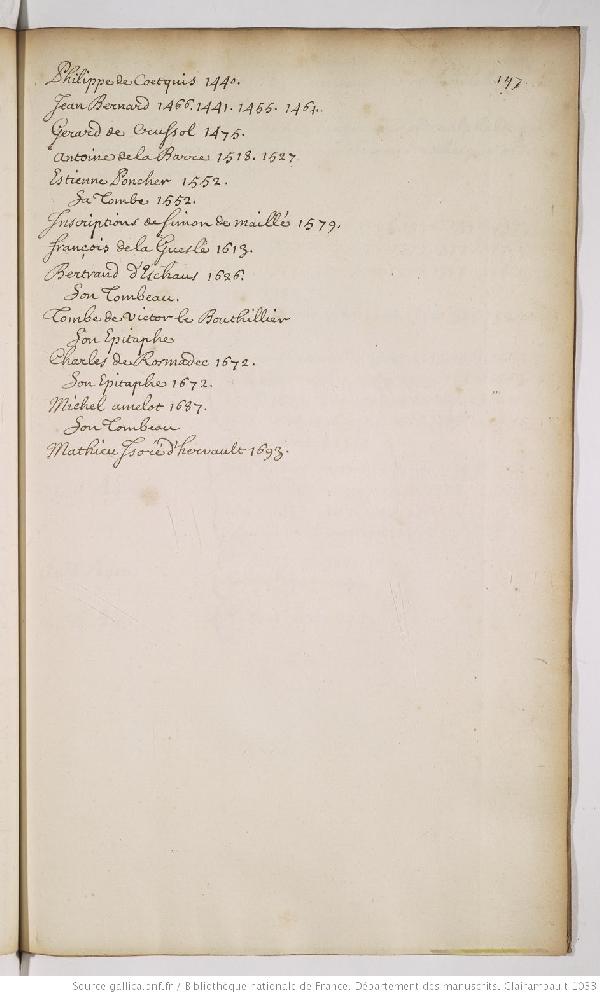 147
Philippe de Coetquis 1440.
Jean Bernard 1466. 1441. 1455. 1461.
Gerard de Crussol 1475.
Antoine de la Barre 1518. 1527
Estienne Poncher 1552.
Sa Tombe 1552.
Inscriptions de Simon de maillé 1579.
françois de la Gueslé 1613.
Bertrand d'Eschaus 1626.
Son Tombeau.
Tombe de Victor le Bouthillier
Son Epitaphe
Charles de Rosmadec 1672.
Son Epitaphe 1672.
Michel amelot 1687.
Son Tombeau
Mathieu Isoré d'hervault 1693.
Source gallica.bnf.fr / Bibliothèque nationale de France. Département des manuscrits. Clairambault 1033